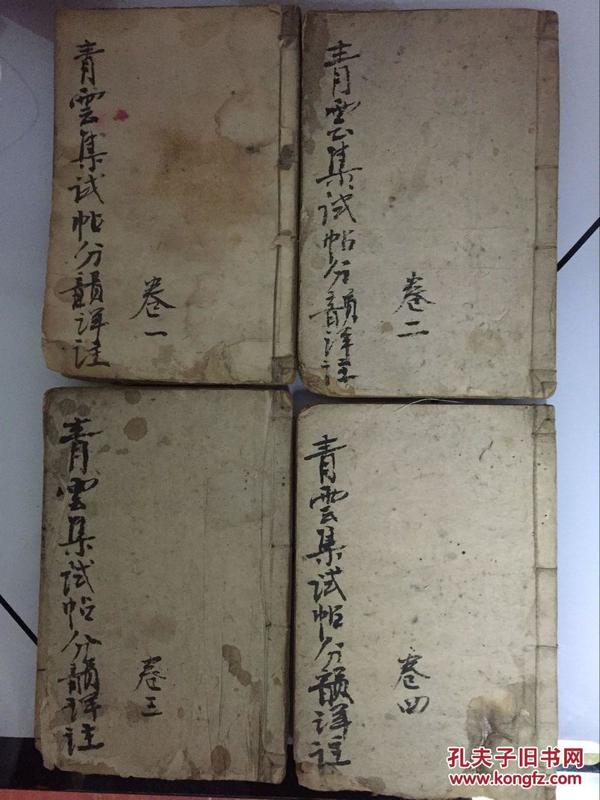 青雲集试帖分韻詳註
卷一
青雲集試帖分韻詳註
卷二
青雲集试帖分韻詳註
卷三
青雲集試帖分韻詳註
卷四
孔夫子旧书网
www.kongfz.com